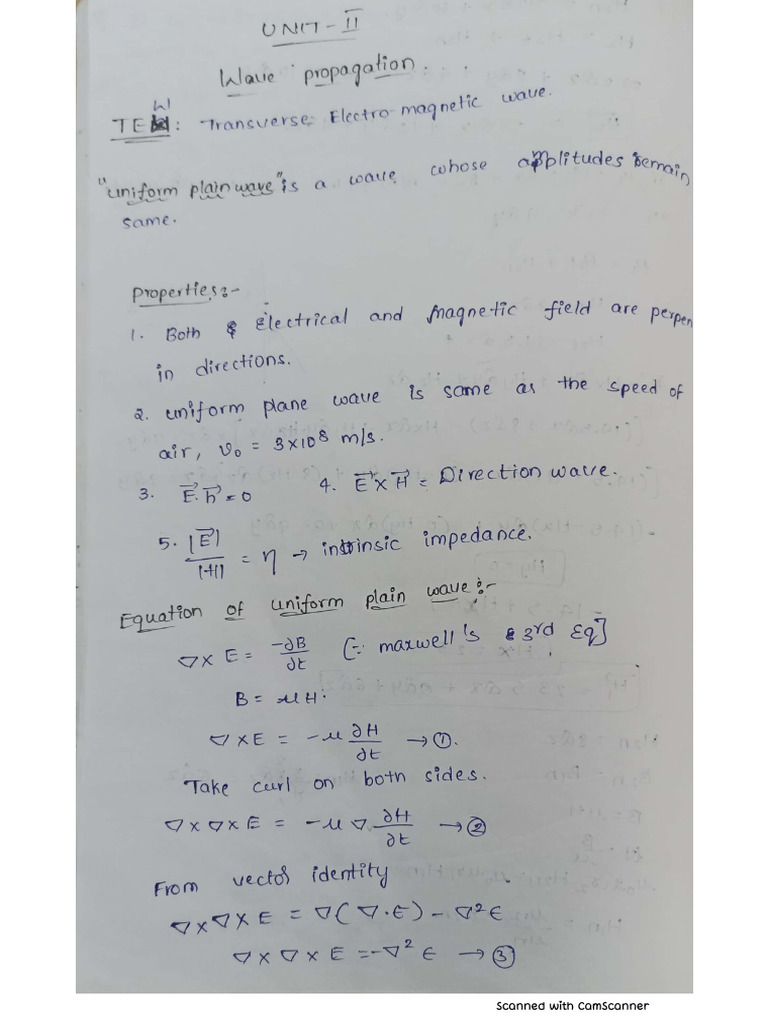 UNIT-II
Wave propagation.
TEM: Transverse Electro magnetic wave.
"uniform plain wave" is a wave whose amplitudes remain
same.
Properties:-
1. Both & Electrical and magnetic field are perpen
in directions.
2. uniform plane wave is same as the speed of
air, v₀ = 3×10⁸ m/s.
3. E⃗.h⃗=0 4. E⃗×H⃗ = Direction wave.
5. |E⃗|/|H| = η → intrinsic impedance.
Equation of uniform plain wave:-
∇×E = -∂B/∂t (∵ maxwell's 3rd Eq]
B = μH.
∇×E = -μ ∂H/∂t → ①.
Take curl on both sides.
∇×∇×E = -μ ∇. ∂H/∂t → ②
From vector identity
∇×∇×E = ∇(∇.E) - ∇²E
∇×∇×E = -∇²E → ③
Scanned with CamScanner